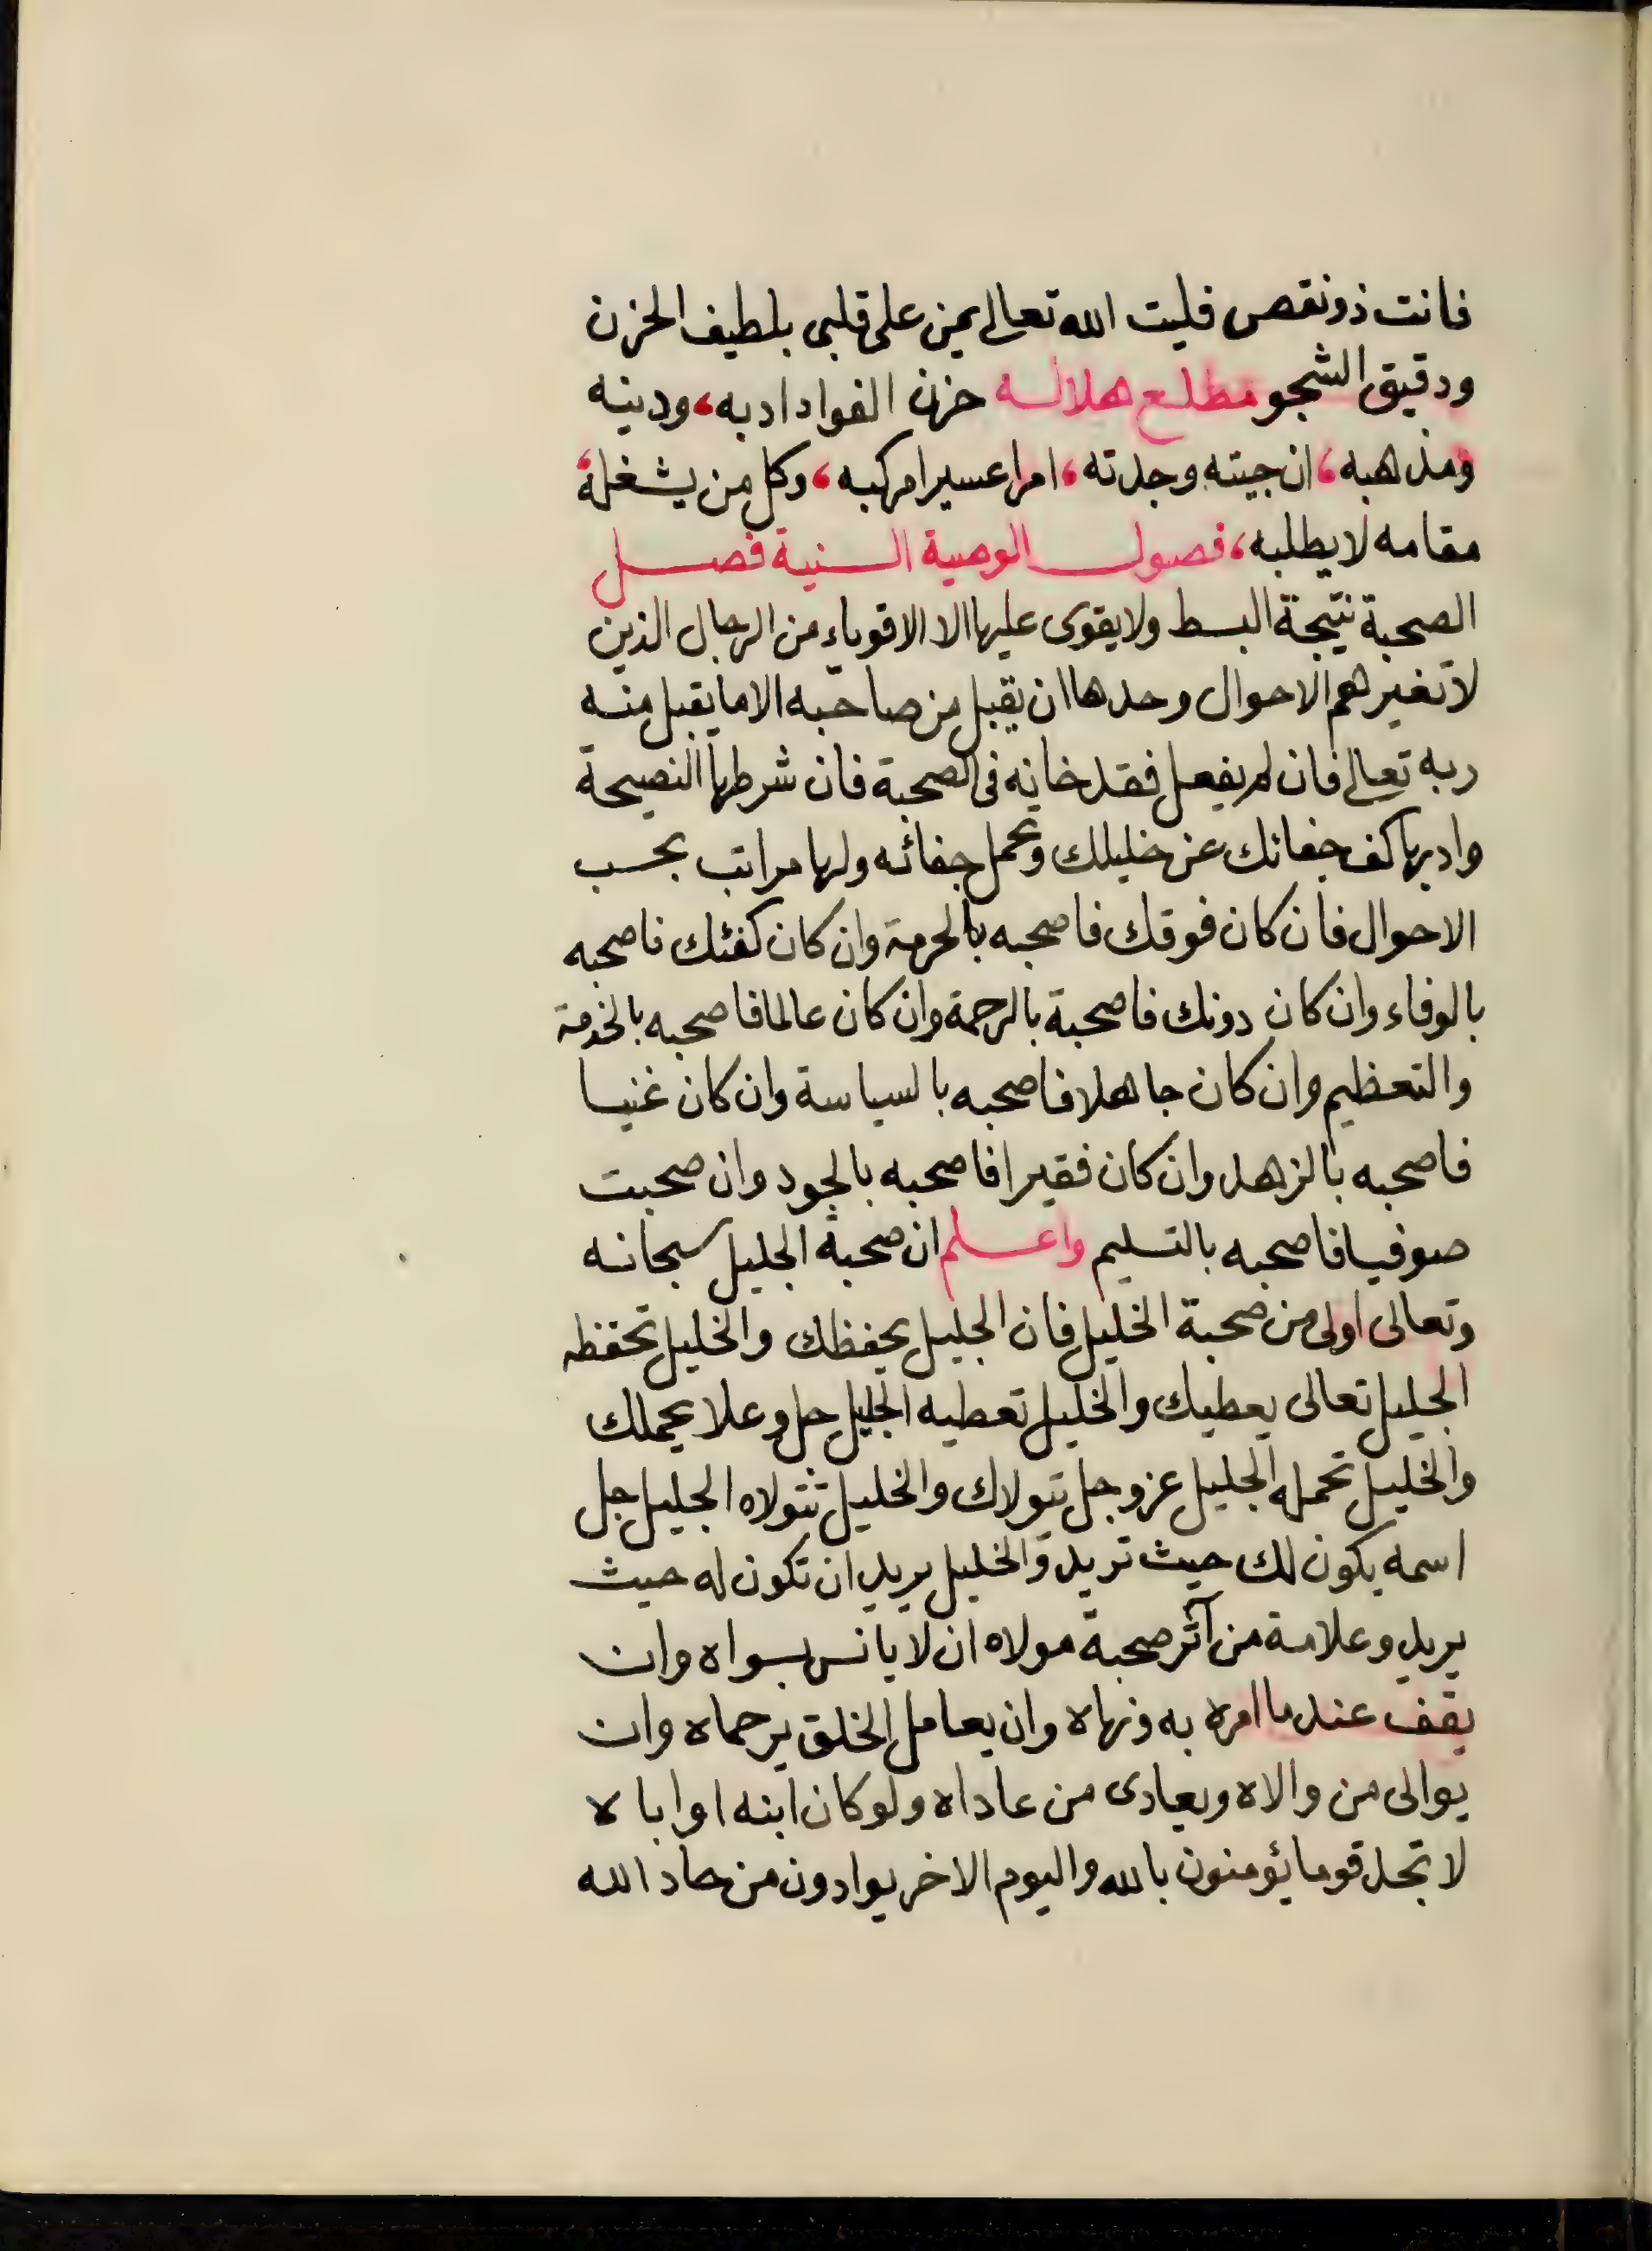 فانت ذو نقص فليت الله تعالى يمن على قلبي بلطيف الحزن
ودقيق الشجو مطلع هلاله حزن الفواد ادبه، ودينه
ومذهبه، ان جيته وجدته، امرا عسيرا مركبه، وكل من يشغله
مقامه لا يطلبه، فصول الوصية السنية فصل
الصحبة نتيجة البسط ولا يقوى عليها الا الاقوياء من الرجال الذين
لا تغيرهم الاحوال وحدها ان يقبل من صاحبه الا ما يقبل منه
ربه تعالى فان لم يفعل فقد خانه فى الصحبة فان شرطها النصيحة
وادبها كف جفائك عن خليلك وتحمل جفائه ولها مراتب بحسب
الاحوال فان كان فوقك فاصحبه بالحرمة وان كان كفئك فاصحبه
بالوفاء وان كان دونك فاصحبة بالرحمة وان كان عالما فاصحبه بالخدمة
والتعظيم وان كان جاهلا فاصحبه بالسياسة وان كان غنيا
فاصحبه بالزهد وان كان فقيرا فاصحبه بالجود وان صحبت
صوفيا فاصحبه بالتسليم واعلم ان صحبة الجليل سبحانه
وتعالى اولى من صحبة الخليل فان الجليل يحفظك والخليل تحفظه
الجليل تعالى يعطيك والخليل تعطيه الجليل جل وعلا يحملك
والخليل تحمله الجليل عز وجل يتولاك والخليل تتولاه الجليل جل
اسمه يكون لك حيث تريد والخليل يريد ان تكون له حيث
يريد وعلامة من آثر صحبة مولاه ان لا يانس بسواه وان
يقف عند ما امره به ونهاه وان يعامل الخلق برحماه وان
يوالى من والاه ويعادى من عاداه ولو كان ابنه او اباه
لا تجد قوما يؤمنون بالله واليوم الاخر يوادون من حاد الله